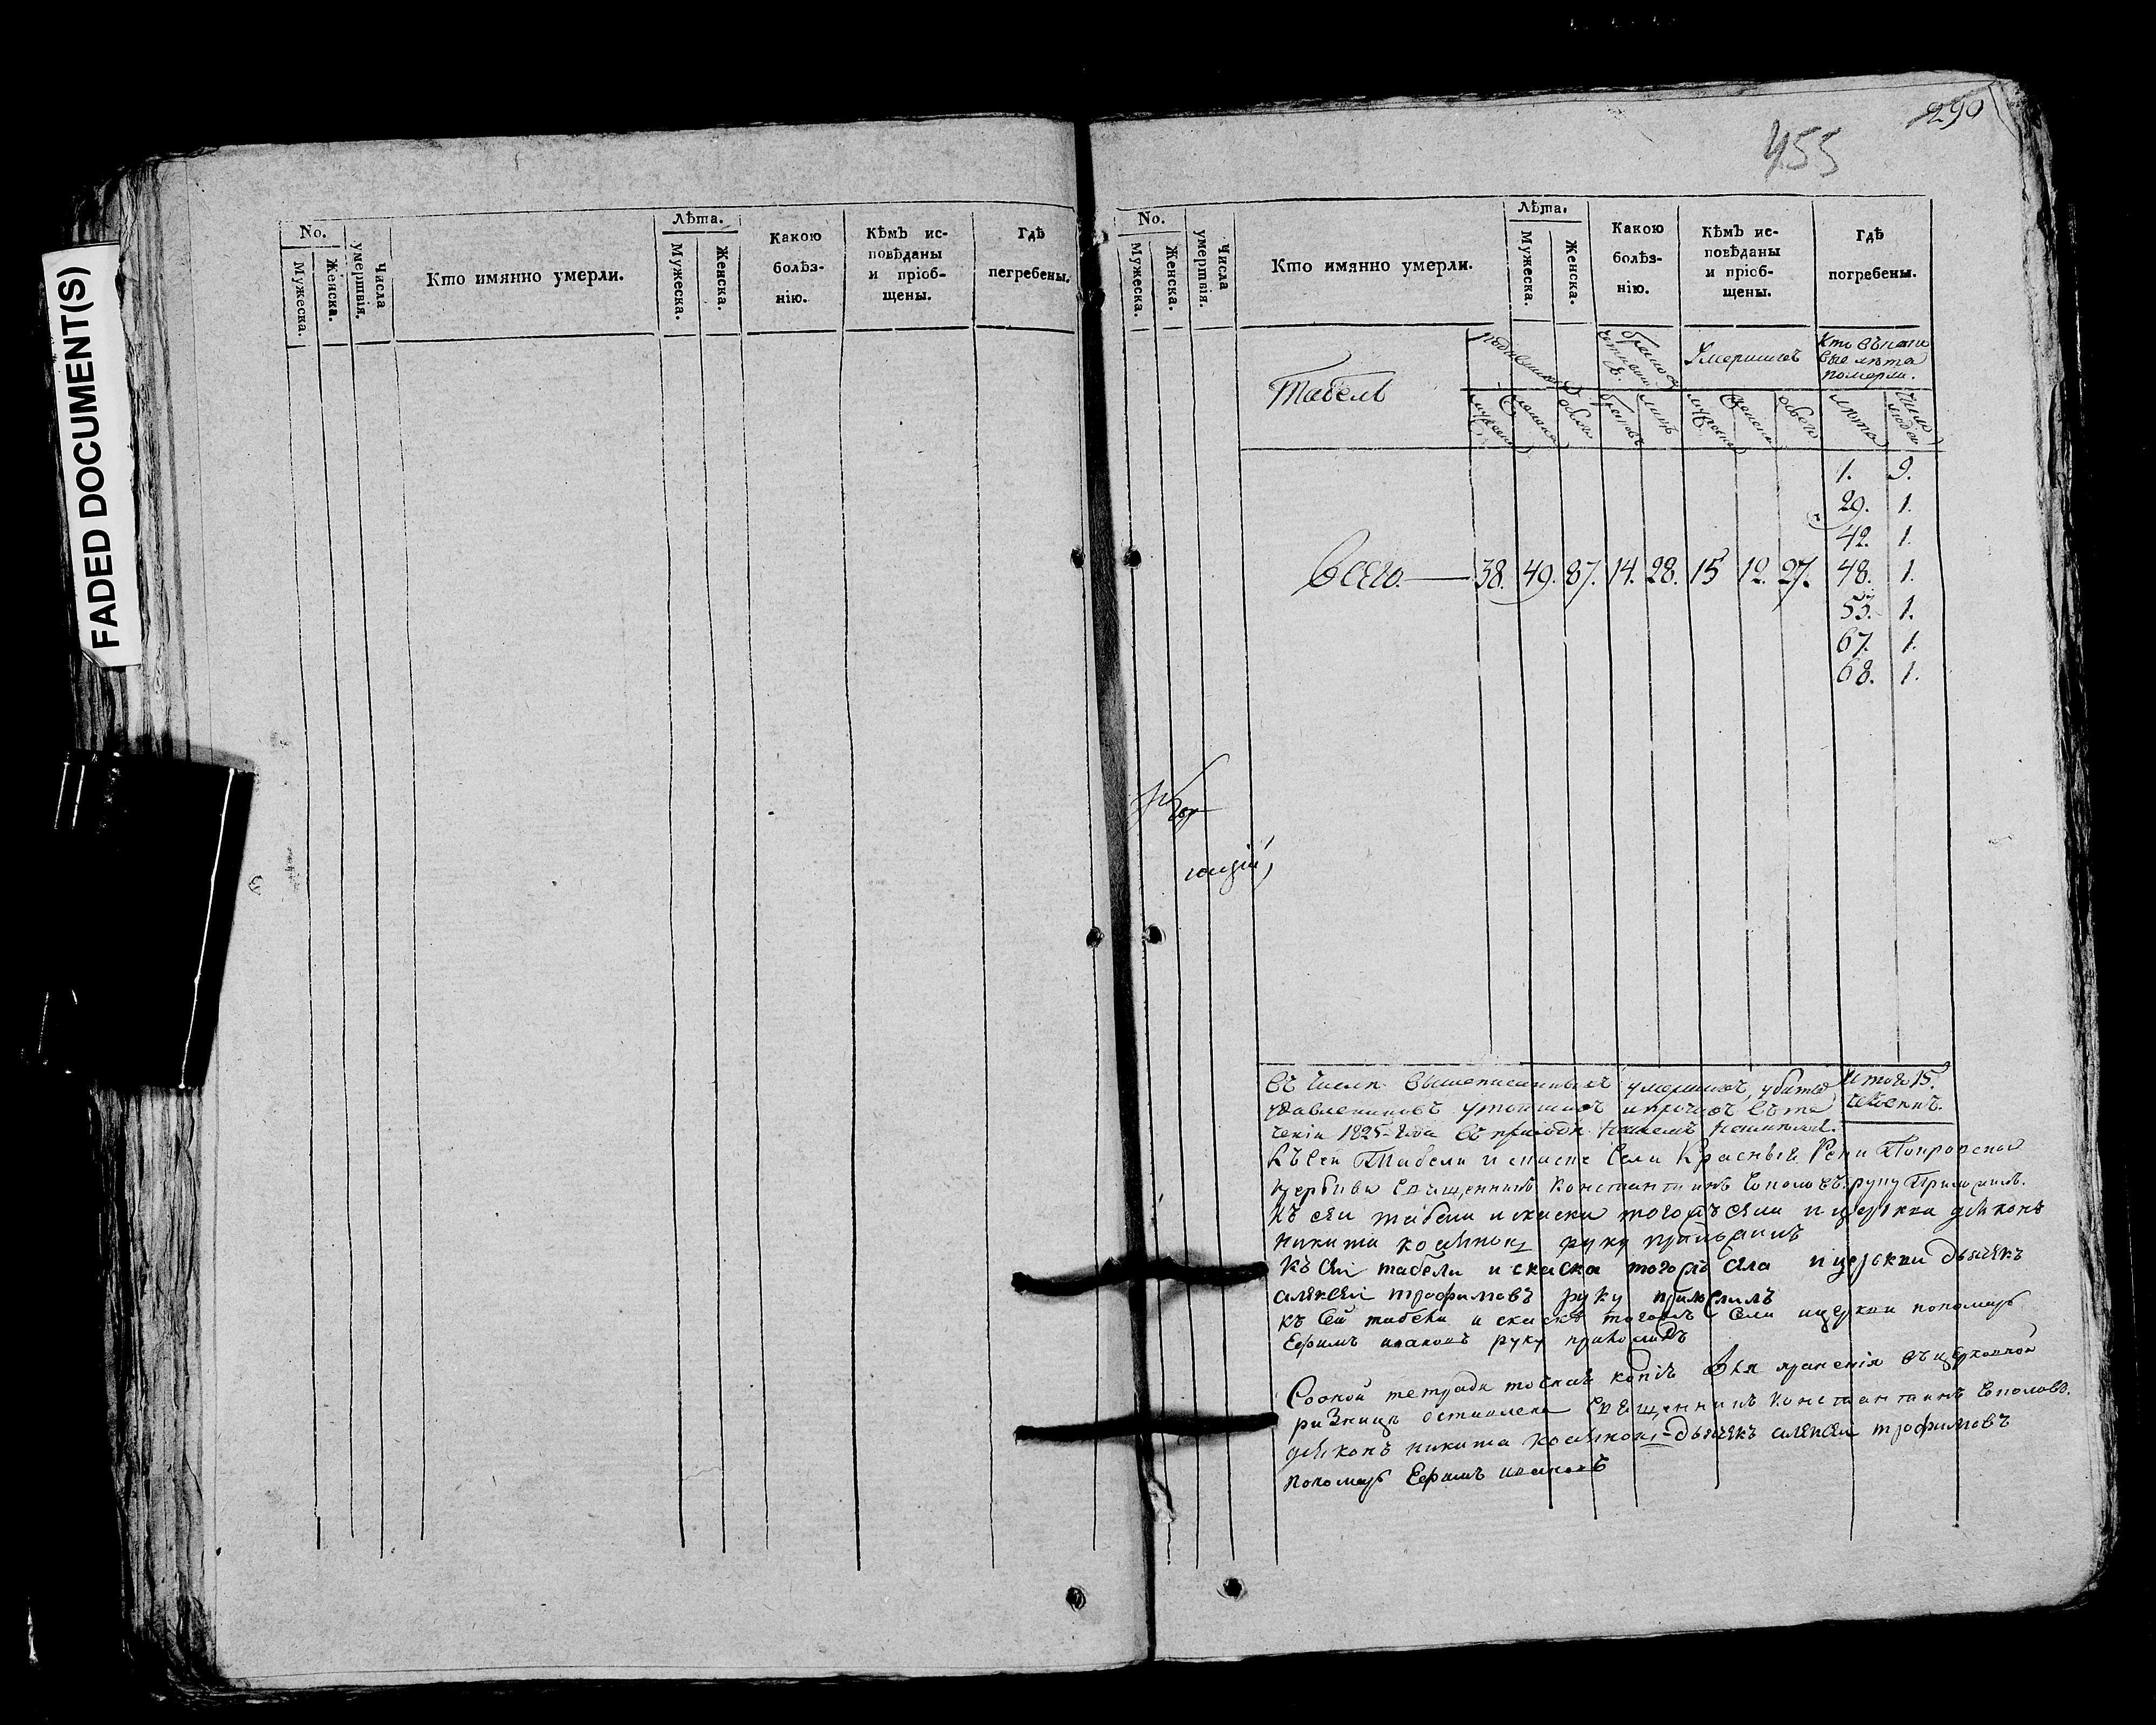 FADED DOCUMENT(S)
290
455
No.
Мужеска.
Женска.
Числа умертвія.
Кто имянно умерли.
Лѣта.
Мужеска.
Женска.
Какою
болѣз-
нію.
Кѣмъ ис-
повѣданы
и пріоб-
щены.
Гдѣ
пегребены.
No.
Мужеска.
Женска.
Числа умертвія.
Кто имянно умерли.
Лѣта.
Мужеска.
Женска.
Какою
болѣз-
нію.
Кѣмъ ис-
повѣданы
и пріоб-
щены.
Гдѣ
погребены.
Табель
Умершихъ
Кто
лѣта
померли.
обоего
лѣта
число людей
1. 9.
29. 1.
42. 1.
Всего 38. 49. 87. 14. 28. 15 12. 27. 48. 1.
53. 1.
67. 1.
68. 1.
Итого 15.
человекъ.
въ числе вышеписанныхъ умершихъ, убитыхъ
удавленниковъ утопшихъ и прочихъ въ те
ченіи 1825 года въ приходе нашемъ
Къ сей Табели и села Красный Покровской
церкви священникъ Константинъ руку Приложилъ.
Къ сей табели и скаски тогожъ села и церкви діяконъ
никита руку приложилъ
Къ сей табели и скаска тогожъ села и церкви дьячекъ
алексей трофимовъ руку приложилъ
къ сей табели и скаске тогожъ села и церкви пономарь
Ефимъ ивановъ руку приложилъ
тетради копія Для храненія въ церковной
ризнице оставлена священникъ Константинъ
діяконъ никита дьячекъ алексей трофимовъ
пономарь Ефимъ ивановъ